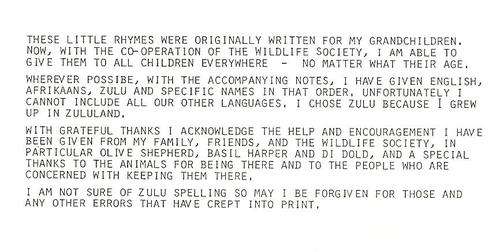 THESE LITTLE RHYMES WERE ORIGINALLY WRITTEN FOR MY GRANDCHILDREN.
NOW, WITH THE CO-OPERATION OF THE WILDLIFE SOCIETY, I AM ABLE TO
GIVE THEM TO ALL CHILDREN EVERYWHERE - NO MATTER WHAT THEIR AGE.
WHEREVER POSSIBE, WITH THE ACCOMPANYING NOTES, I HAVE GIVEN ENGLISH,
AFRIKAANS, ZULU AND SPECIFIC NAMES IN THAT ORDER. UNFORTUNATELY I
CANNOT INCLUDE ALL OUR OTHER LANGUAGES. I CHOSE ZULU BECAUSE I GREW
UP IN ZULULAND.
WITH GRATEFUL THANKS I ACKNOWLEDGE THE HELP AND ENCOURAGEMENT I HAVE
BEEN GIVEN FROM MY FAMILY, FRIENDS, AND THE WILDLIFE SOCIETY, IN
PARTICULAR OLIVE SHEPHERD, BASIL HARPER AND DI DOLD, AND A SPECIAL
THANKS TO THE ANIMALS FOR BEING THERE AND TO THE PEOPLE WHO ARE
CONCERNED WITH KEEPING THEM THERE.
I AM NOT SURE OF ZULU SPELLING SO MAY I BE FORGIVEN FOR THOSE AND
ANY OTHER ERRORS THAT HAVE CREPT INTO PRINT.